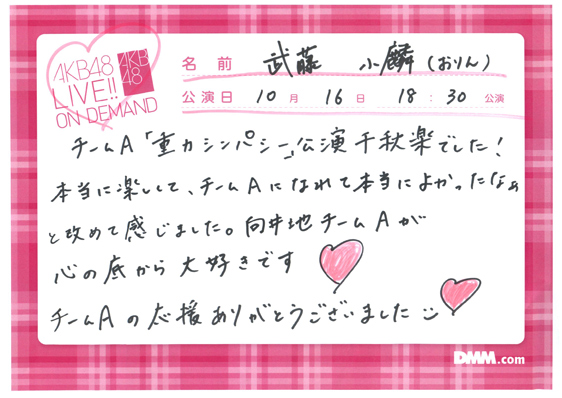 AKB48
LIVE!!
ON DEMAND
AKB
48
名前 武藤 小麟(おりん)
公演日 10月 16日 18:30 公演
チームA「重力シンパシー」公演千秋楽でした!
本当に楽しくて、チームAになれて本当によかったなぁ
と改めて感じました。向井地チームAが
心の底から大好きです
チームAの応援ありがとうございました
DMM.com